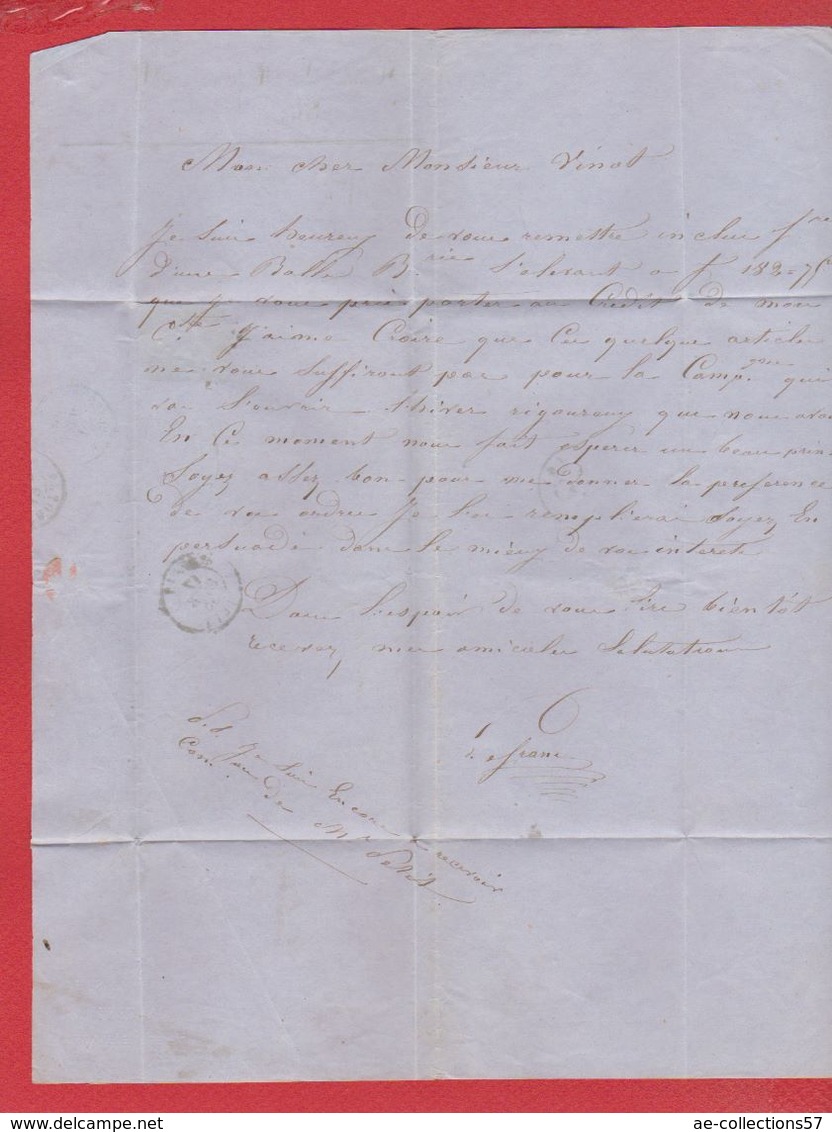 Mon cher Monsieur Vinot
Je suis heureux de vous remettre inclus f.re
d'une Balle B.rie S'elevant a f 182=75
que je vous prie porter au Crédit de mon
C.te J'aime Croire que Ces quelque articles
ne vous suffiront pas pour la Camp.gne qui
va S'ouvrir l'hiver rigoureux que nous avo
En Ce moment nous fait esperer un beau prin
Soyez assez bon pour me donner la preference
de vos ordres Je les remplirai Soyez En
persuadé dans le mieux de vos interets
Dans l'espoir de vous lire bientôt
recevez mes amicales Salutations
P.S. Je Suis Encore a recevoir
de M.r Petit
ae-collections57